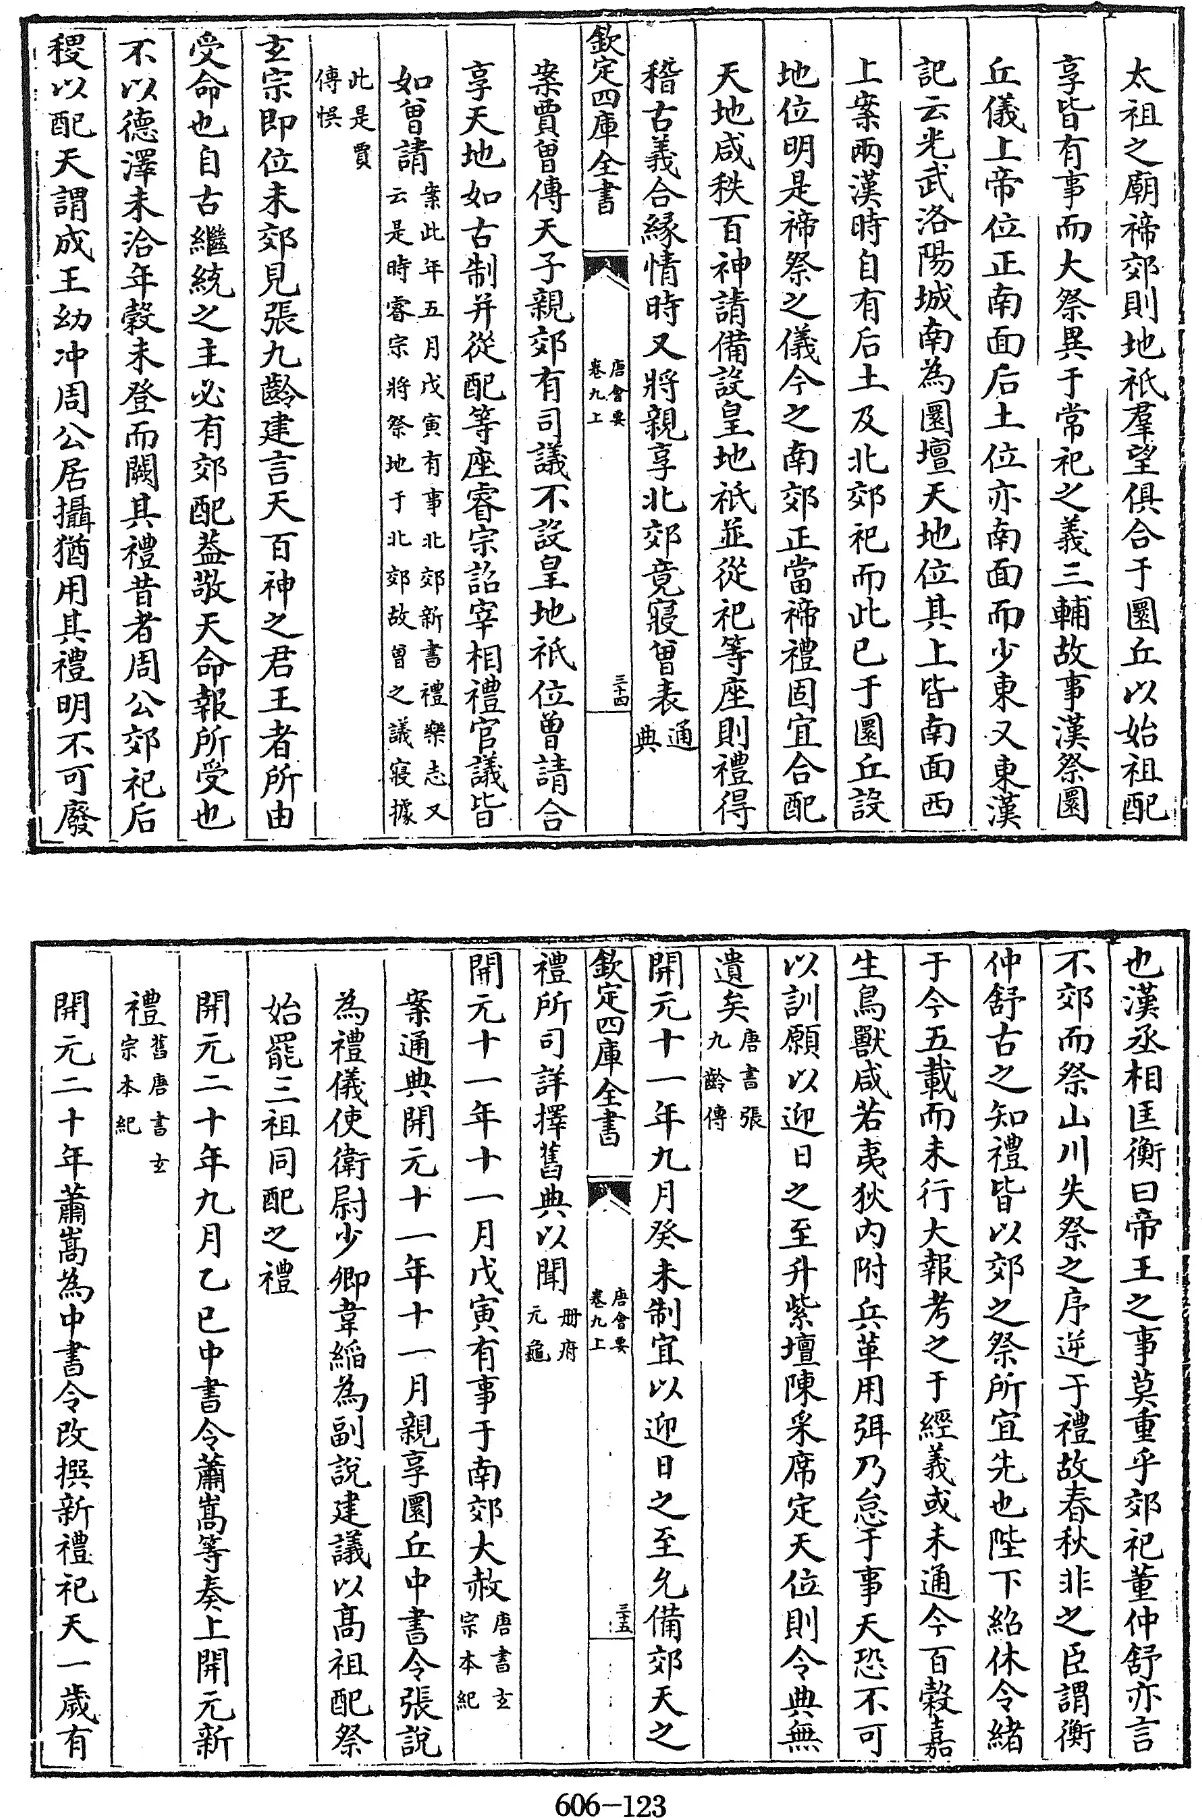 太祖之廟禘郊則地祇羣望俱合于圜丘以始祖配
享皆有事而大祭異于常祀之義三輔故事漢祭圜
丘儀上帝位正南面后土位亦南面而少東又東漢
記云光武洛陽城南為圜壇天地位其上皆南面西
上案兩漢時自有后土及北郊祀而此已于圜丘設
地位明是禘祭之儀今之南郊正當禘禮固宜合配
天地咸秩百神請備設皇地祇並從祀等座則禮得
稽古義合緣情時又將親享北郊竟寢曾表通典
欽定四庫全書 唐會要卷九上 三十四
案賈曾傳天子親郊有司議不設皇地祇位曾請合
享天地如古制并從配等座睿宗詔宰相禮官議皆
如曾請案此年五月戊寅有事北郊新書禮樂志又云是時睿宗將祭地于北郊故曾之議寢據
此是賈傳悞
玄宗即位未郊見張九齡建言天百神之君王者所由
受命也自古繼統之主必有郊配葢敬天命報所受也
不以德澤未洽年榖未登而闕其禮昔者周公郊祀后
稷以配天謂成王幼冲周公居攝猶用其禮明不可廢
也漢丞相匡衡曰帝王之事莫重乎郊祀董仲舒亦言
不郊而祭山川失祭之序逆于禮故春秋非之臣謂衡
仲舒古之知禮皆以郊之祭所宜先也陛下紹休令緒
于今五載而未行大報考之于經義或未通今百榖嘉
生鳥獸咸若夷狄内附兵革用弭乃怠于事天恐不可
以訓願以迎日之至升紫壇陳采席定天位則令典無
遺矣唐書張九齡傳
開元十一年九月癸未制宜以迎日之至允備郊天之
欽定四庫全書 唐會要卷九上 三十五
禮所司詳擇舊典以聞册府元龜
開元十一年十一月戊寅有事于南郊大赦唐書玄宗本紀
案通典開元十一年十一月親享圜丘中書令張說
為禮儀使衛尉少卿韋縚為副說建議以髙祖配祭
始罷三祖同配之禮
開元二十年九月乙巳中書令蕭嵩等奏上開元新
禮舊唐書玄宗本紀
開元二十年蕭嵩為中書令改撰新禮祀天一歲有
606-123